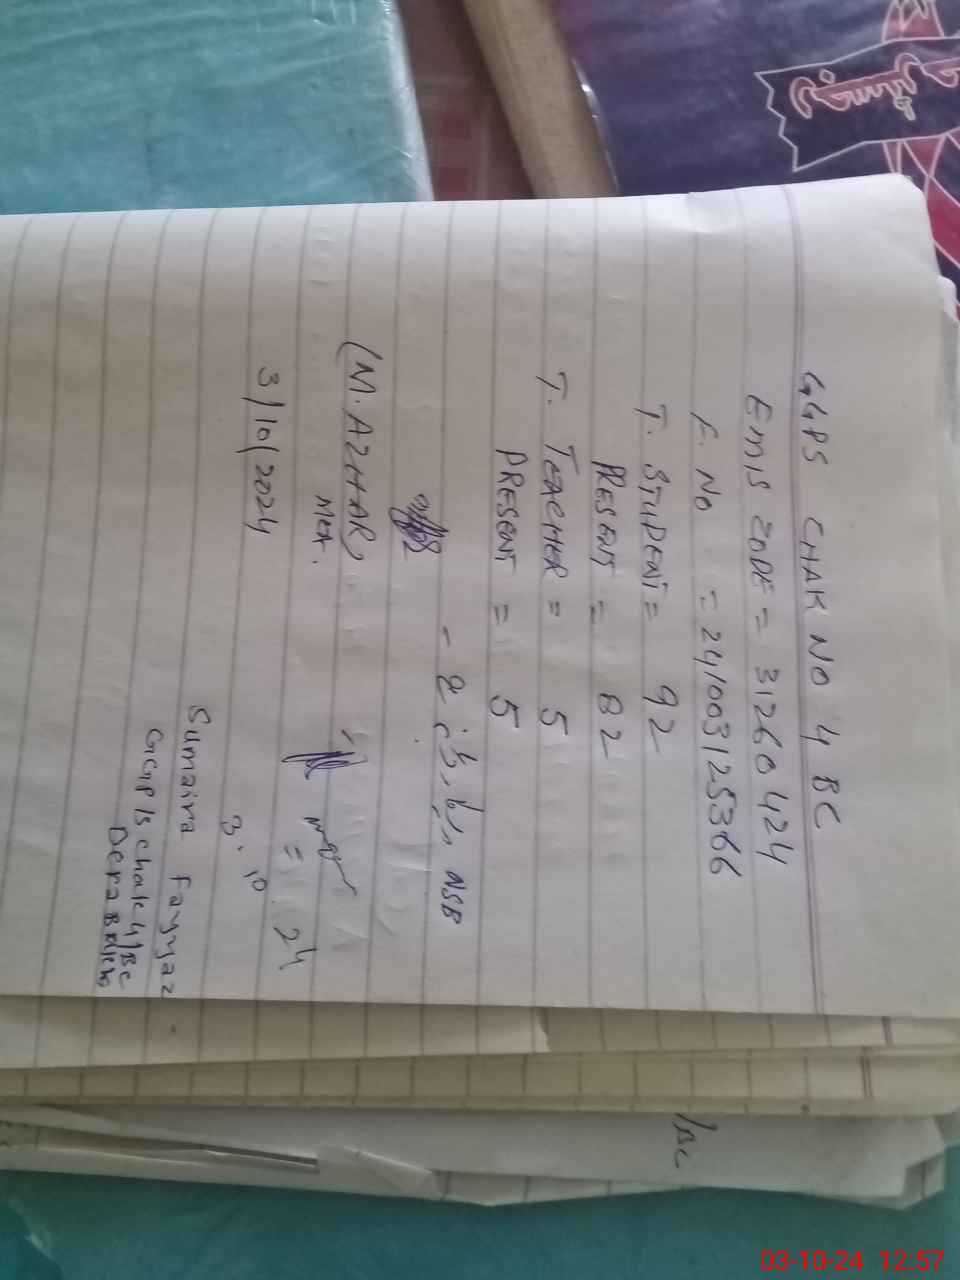 GGPS CHAK NO 4 BC
EMIS CODE = 31260424
F. NO = 241003125366
T. STUDENT = 92
PRESENT = 82
T. TEACHER = 5
PRESENT = 5
NSB
(M. AZHAR)
MEA.
3/10/2024
3. 10 = 24
Sumaira fayyaz.
GGP/S chak 4/BC
Dera
/BC
رجسٹر
03-10-24 12:57